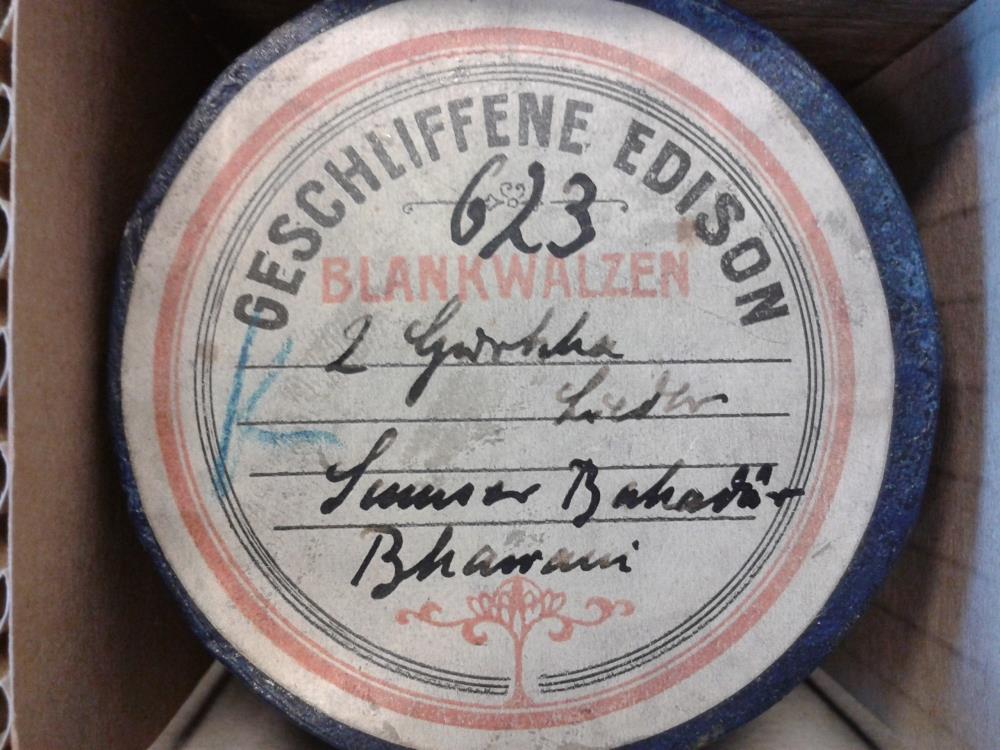 GESCHLIFFENE EDISON
623
BLANKWALZEN
2 Gurkha
Lieder
K
Sumser Bahadür
Bhawani